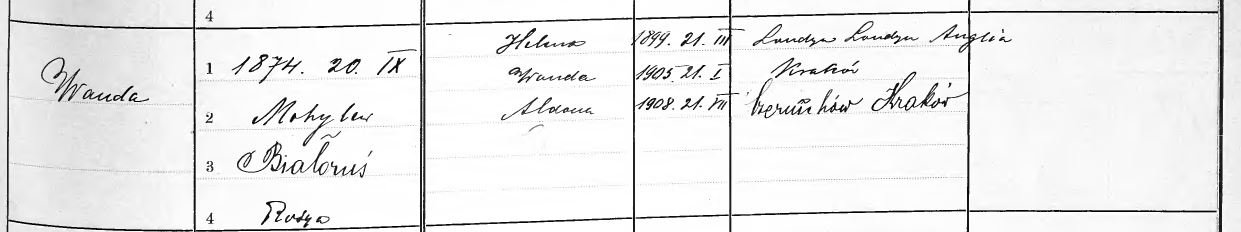 4
Helena 1899. 21. III Londyn Londyn Anglia
Wanda 1 1874. 20. IX Wanda 1905. 21. I Kraków
2 Mohylew Aldona 1908. 21. VII Kraków
3 Białoruś
4 Rosya